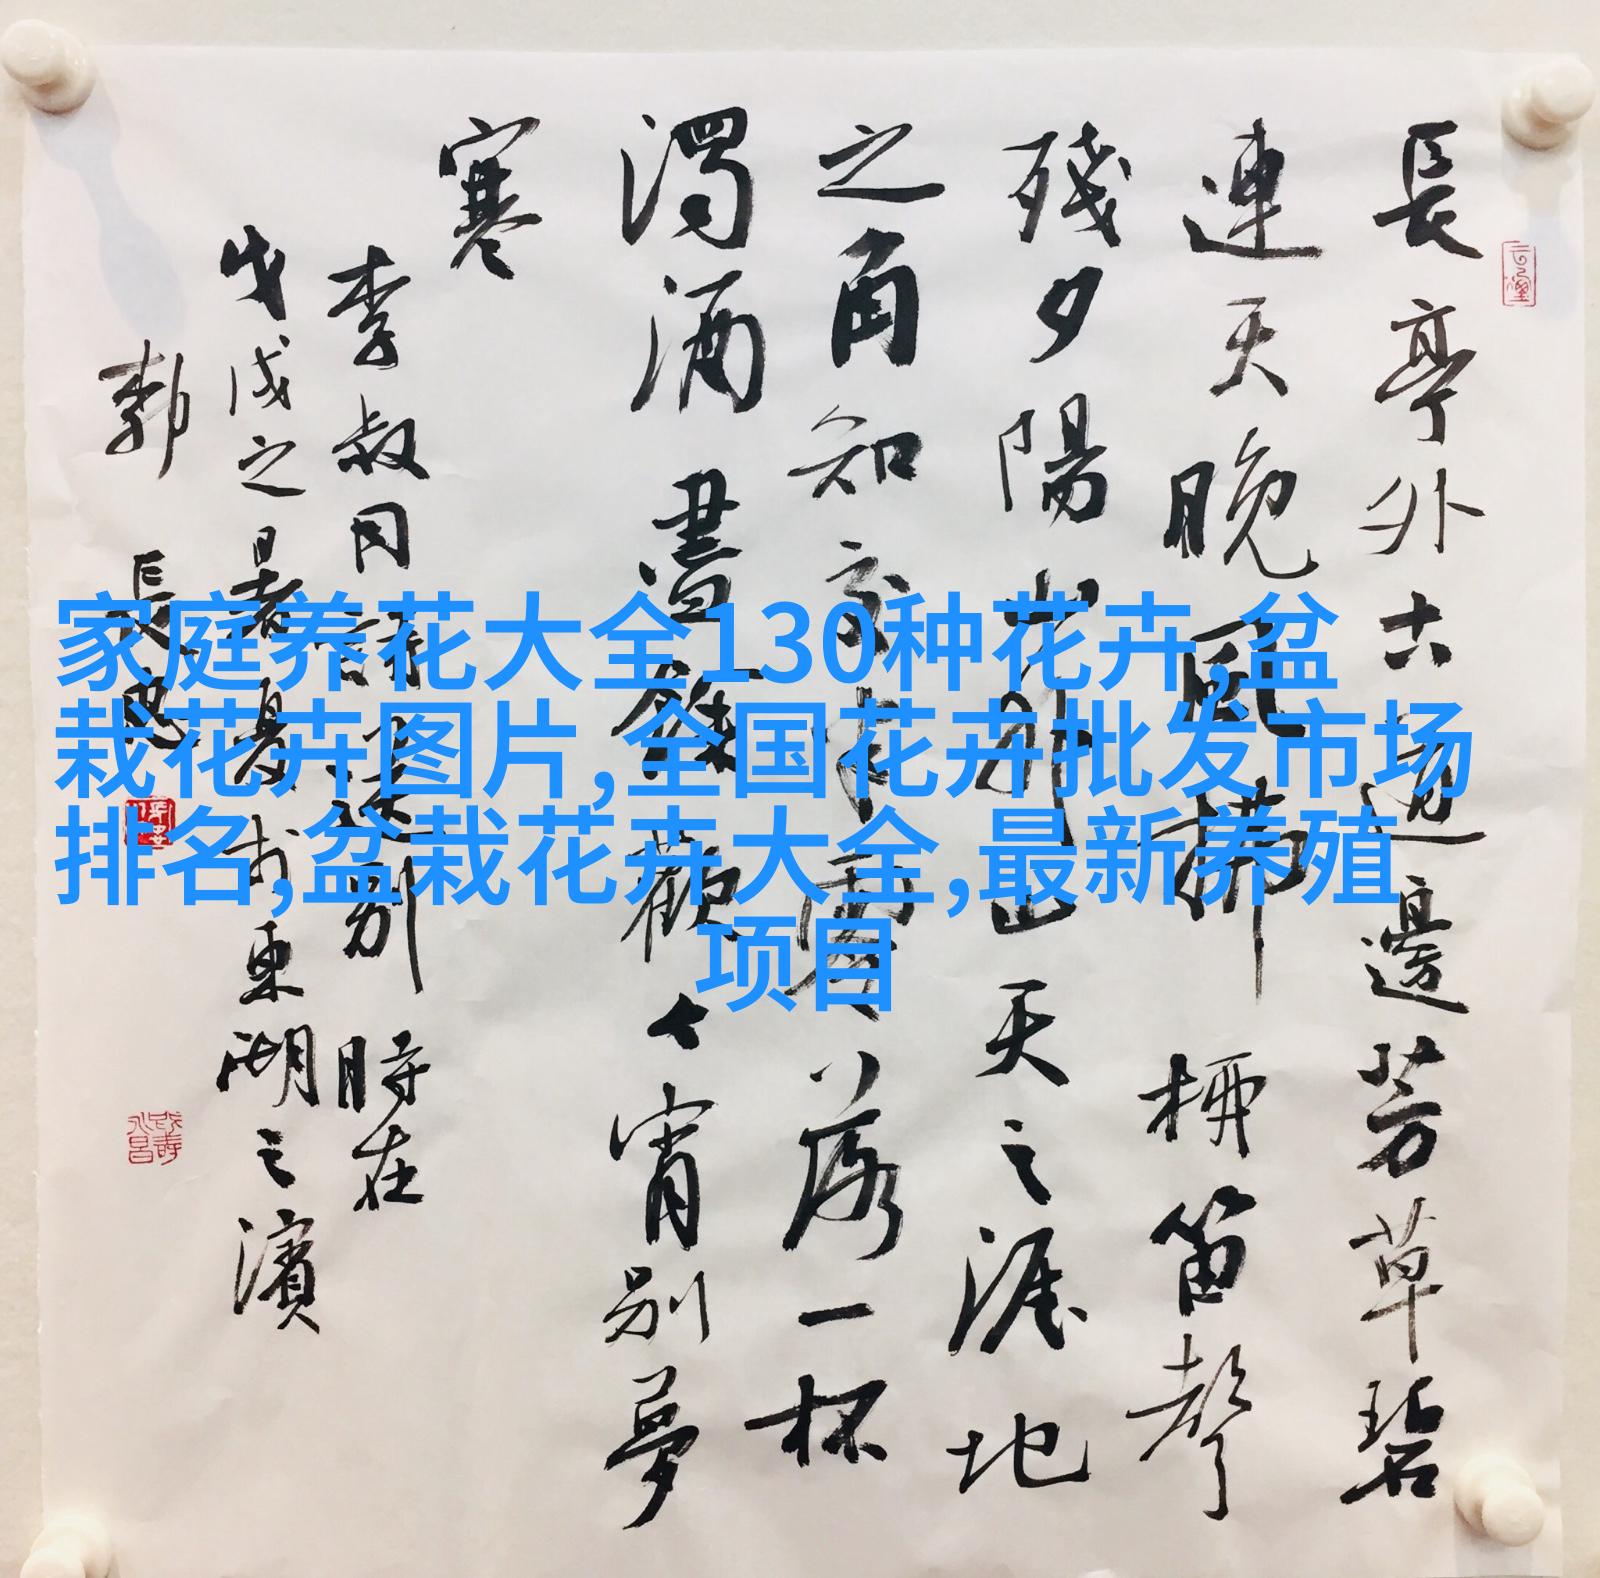 家庭养花大全130种花卉,盆
栽花卉图片,全国花卉批发市场
排名,盆栽花卉大全,最新养殖
项目
長亭外古道邊芳草碧
連天晚風拂柳笛聲
殘夕陽山外山天之涯地
之角知交半零落一杯
濁酒盡餘歡今宵別夢
寒
李叔同詩送別時在
戊戌之暑夏於東湖之濱
長